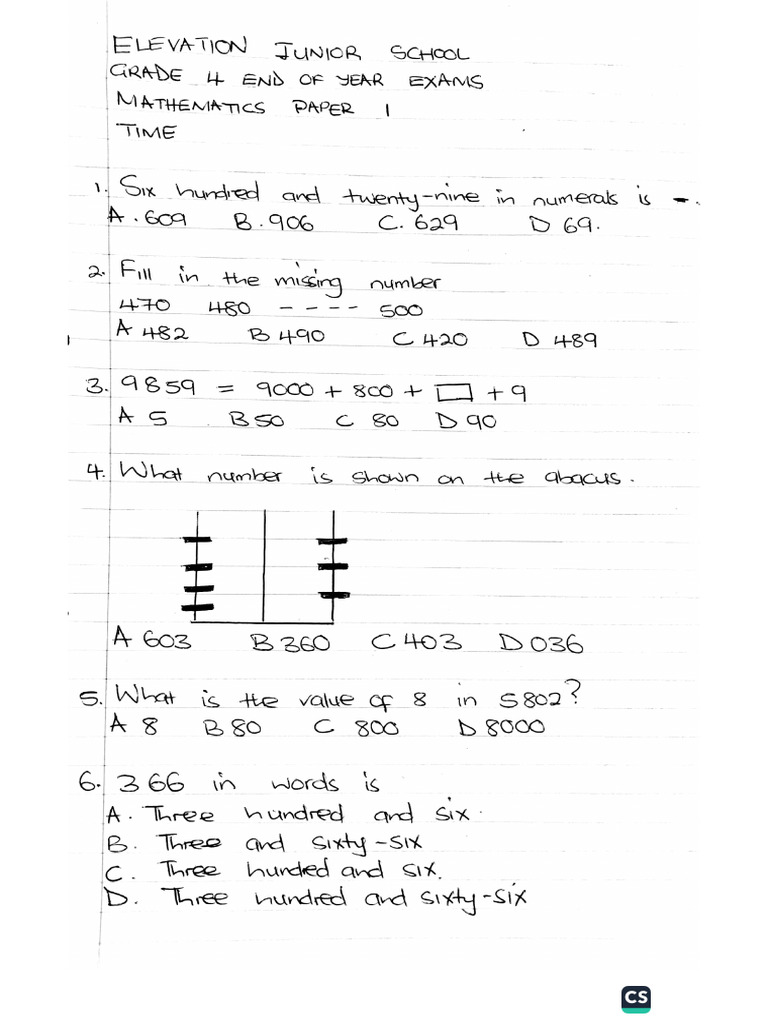 ELEVATION JUNIOR SCHOOL
GRADE 4 END OF YEAR EXAMS
MATHEMATICS PAPER 1
TIME
1. Six hundred and twenty-nine in numerals is -.
A. 609 B. 906 C. 629 D 69.
2. Fill in the missing number
470 480 ---- 500
A 482 B 490 C 420 D 489
3. 9859 = 9000 + 800 + □ + 9
A 5 B 50 C 80 D 90
4. What number is shown on the abacus.
A 603 B 360 C 403 D 036
5. What is the value of 8 in 5802?
A 8 B 80 C 800 D 8000
6. 366 in words is
A. Three hundred and six.
B. Three and sixty-six
C. Three hundred and six.
D. Three hundred and sixty-six
CS